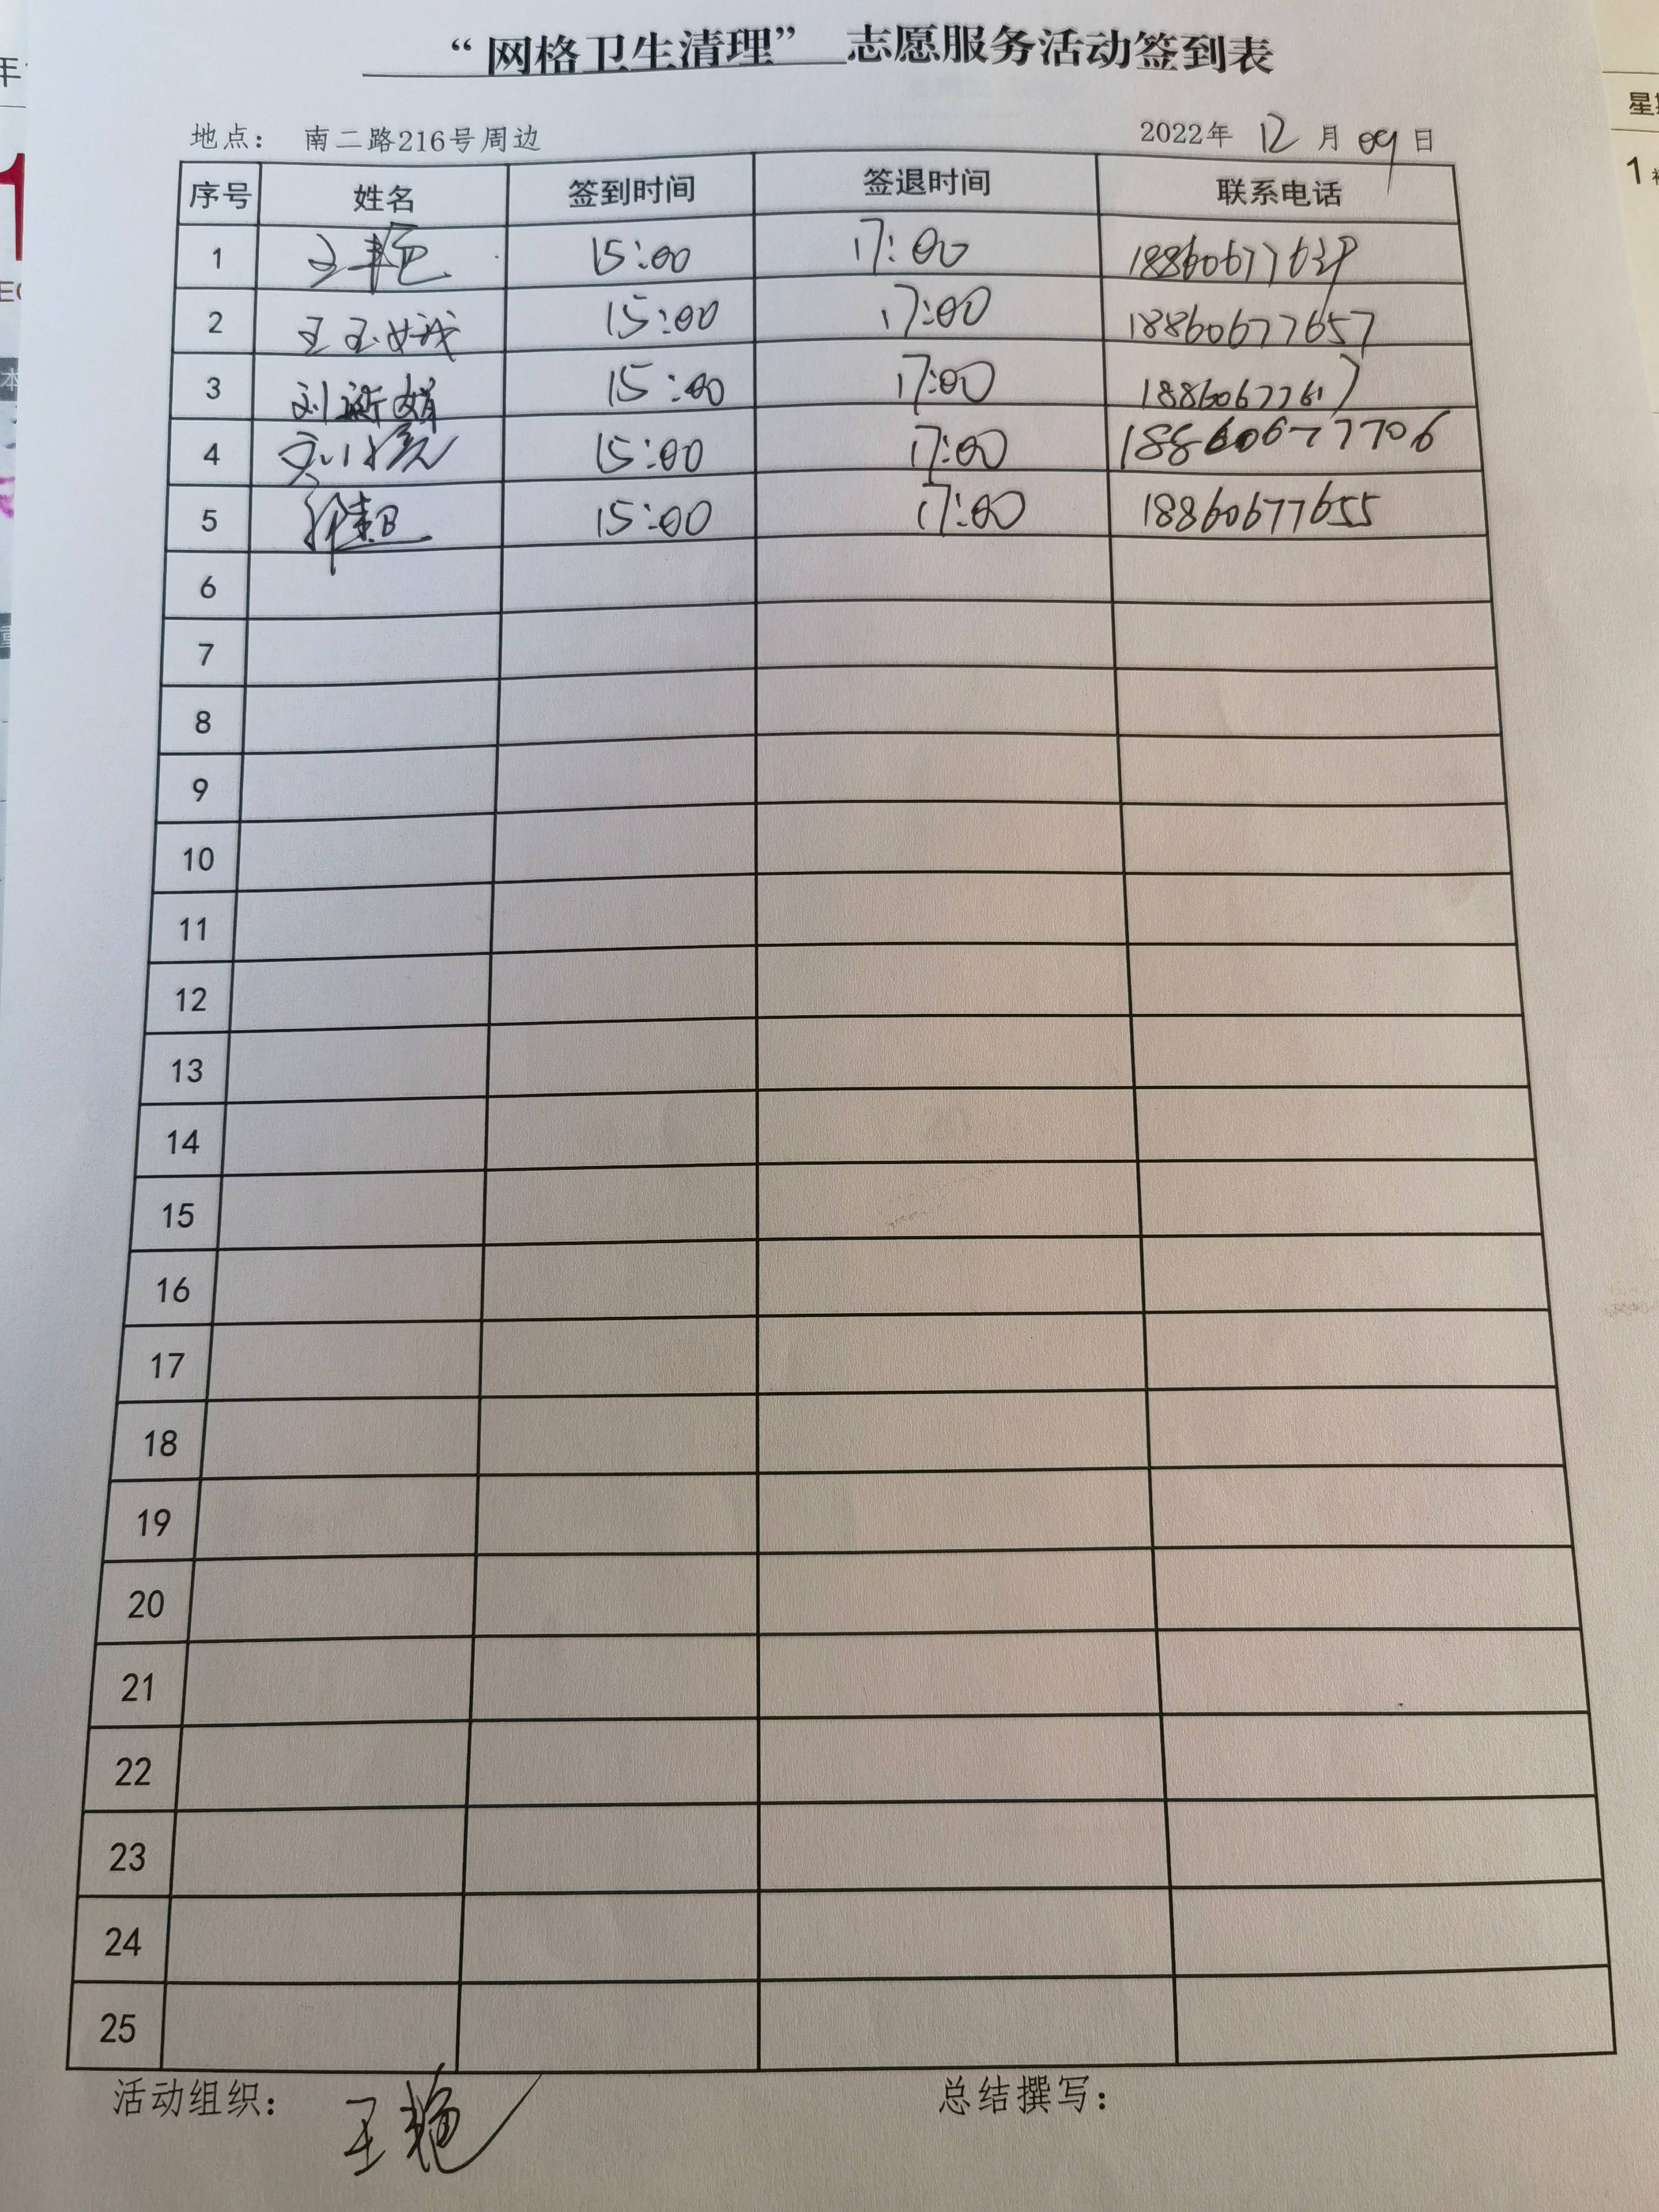 “网格卫生清理” 志愿服务活动签到表
地点： 南二路216号周边 2022年 12 月 09 日
序号 姓名 签到时间 签退时间 联系电话
1 王艳 15:00 17:00
2 15:00 17:00 18860677657
3 15:00 17:00 18860677617
4 15:00 17:00 18860677706
5 15:00 17:00 18860677655
6
7
8
9
10
11
12
13
14
15
16
17
18
19
20
21
22
23
24
25
活动组织： 王艳 总结撰写：